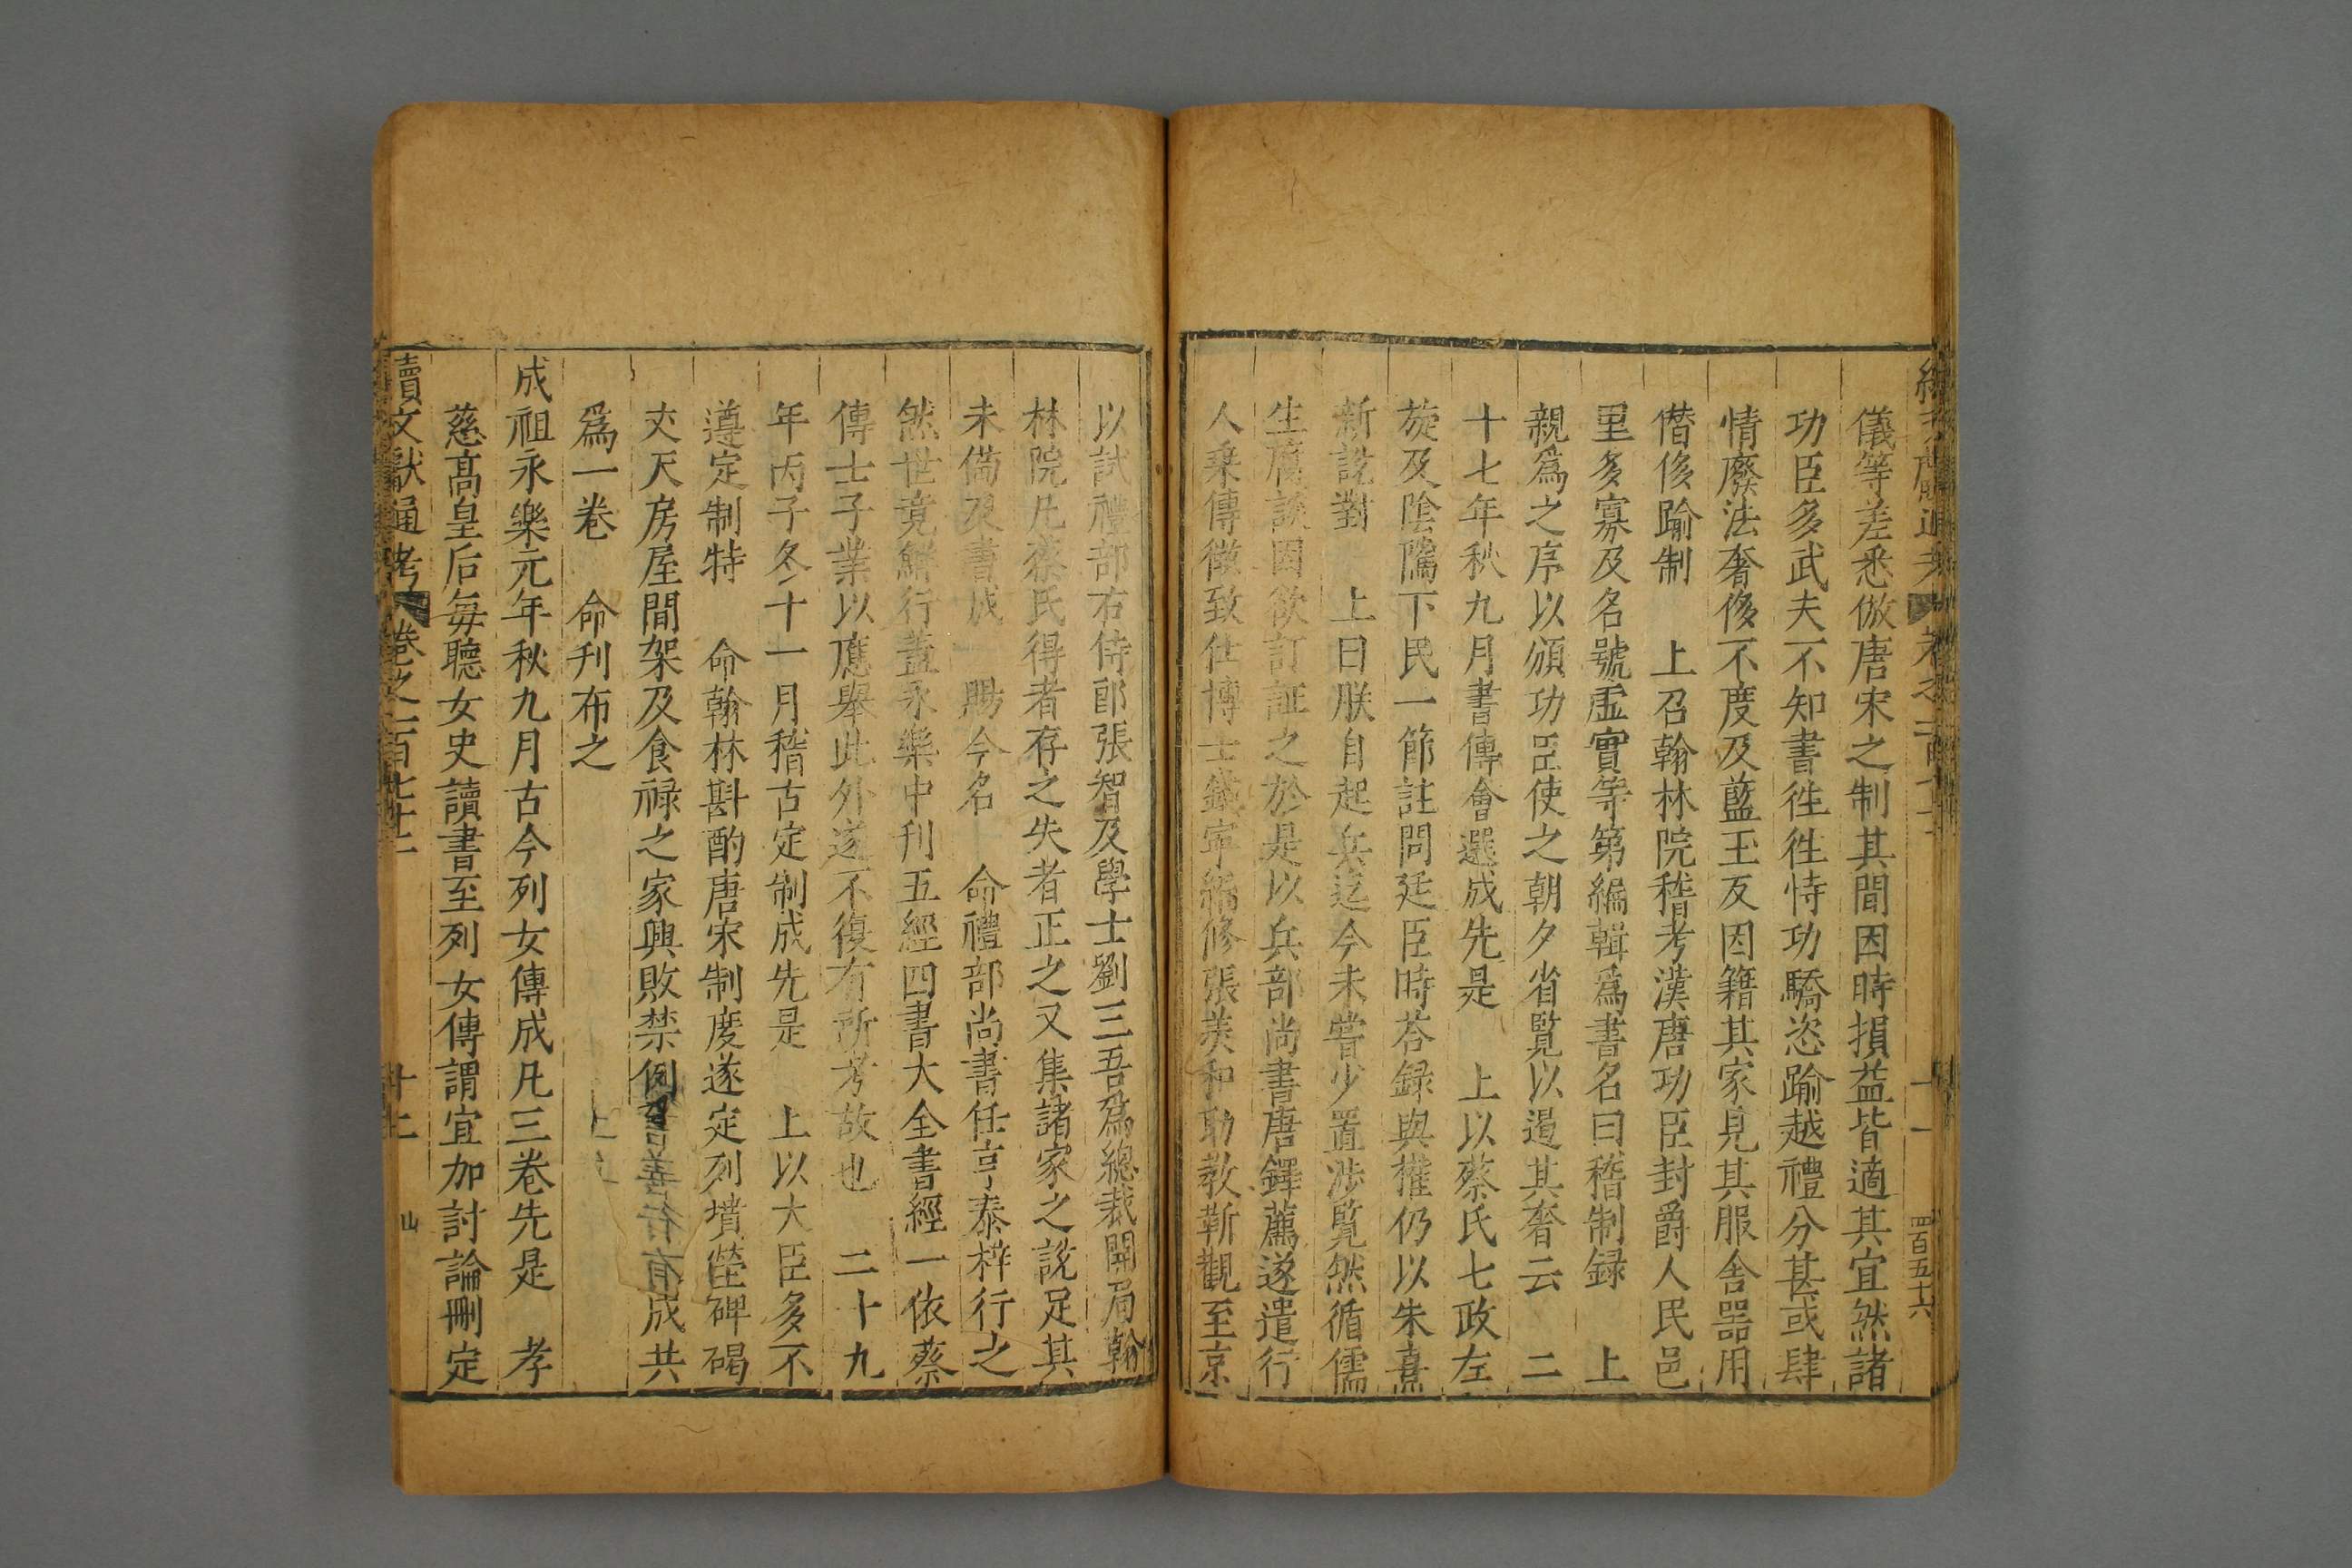 儀等差悉倣唐宋之制其間因時損益皆適其宜然諸
功臣多武夫不知書徃徃恃功驕恣踰越禮分甚或肆
情廢法奢侈不度及藍玉反因籍其家見其服舍噐用
僣侈踰制　上召翰林院稽考漢唐功臣封爵人民邑
里多寡及名號虛實等第編輯爲書名曰稽制録　上
親爲之序以頒功臣使之朝夕省覽以遏其奢云　二
十七年秋九月書傳會選成先是　上以蔡氏七政左
旋及陰隲下民一節註問廷臣時荅録與權仍以朱熹
新說對　上曰朕自起兵迄今未嘗少置渉覧然循儒
生腐談因欲訂証之於是以兵部尚書唐鐸薦遂遣行
人乗傳徵致仕博士錢宰編修張美和助教靳觀至京
四百五十六
以試禮部右侍郎張智及學士劉三吾爲緫裁開局翰
林院凡蔡氏得者存之失者正之又集諸家之說足其
未備及書成　賜今名　命禮部尚書任亨泰梓行之
然世竟鮮行蓋永樂中刊五經四書大全書經一依蔡
傳士子業以應舉此外遂不復有所考故也　二十九
年丙子冬十一月稽古定制成先是　上以大臣多不
遵定制特　命翰林斟酌唐宋制度遂定列墳塋碑碣
丈尺房屋間架及食禄之家興敗禁例善有成共
爲一卷　命刊布之
成祖永樂元年秋九月古今列女傳成凡三卷先是　孝
慈高皇后每聽女史讀書至列女傳謂宜加討論刪定
續文獻通考　卷之一百七十二　十二　山